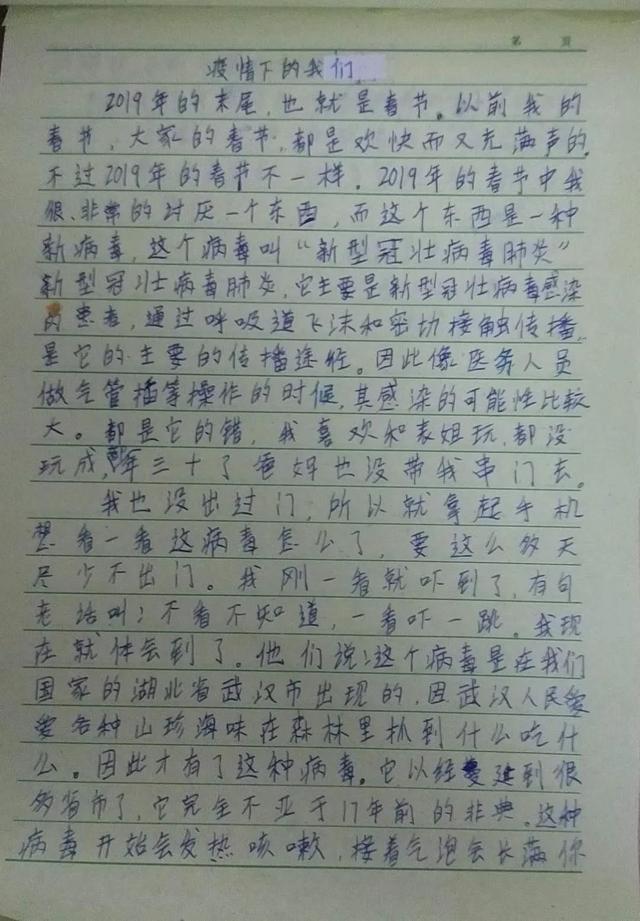 第 页
疫情下的我们
2019年的末尾，也就是春节。以前我的
春节，大家的春节，都是欢快而又充满声的，
不过2019年的春节不一样。2019年的春节中我
很、非常的讨厌一个东西，而这个东西是一种
新病毒，这个病毒叫“新型冠壮病毒肺炎”
新型冠壮病毒肺炎，它主要是新型冠壮病毒感染
的患者，通过呼吸道飞沫和密切接触传播，
是它的主要的传播途径。因此像医务人员
做气管插等操作的时候，其感染的可能性比较
大。都是它的错，我喜欢和表姐玩，都没
玩成，年三十了爸妈也没带我串门去。
我也没出过门，所以就拿起手机
想看一看这病毒怎么了，要这么多天
尽少不出门。我刚一看就吓到了，有句
老话叫：不看不知道，一看吓一跳。我现
在就体会到了。他们说：这个病毒是在我们
国家的湖北省武汉市出现的，因武汉人民爱
爱各种山珍海味在森林里抓到什么吃什
么。因此才有了这种病毒。它以经 到很
多省市了，它完全不亚于17年前的非典。这种
病毒开始会发热咳嗽，接着气泡会长满你